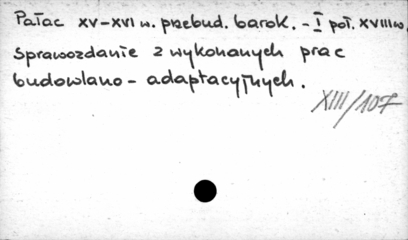 Pałac XV-XVI w. przebud. barok. - I poł. XVIII w.
Sprawozdanie z wykonanych prac
budowlano - adaptacyjnych.
XIII/107